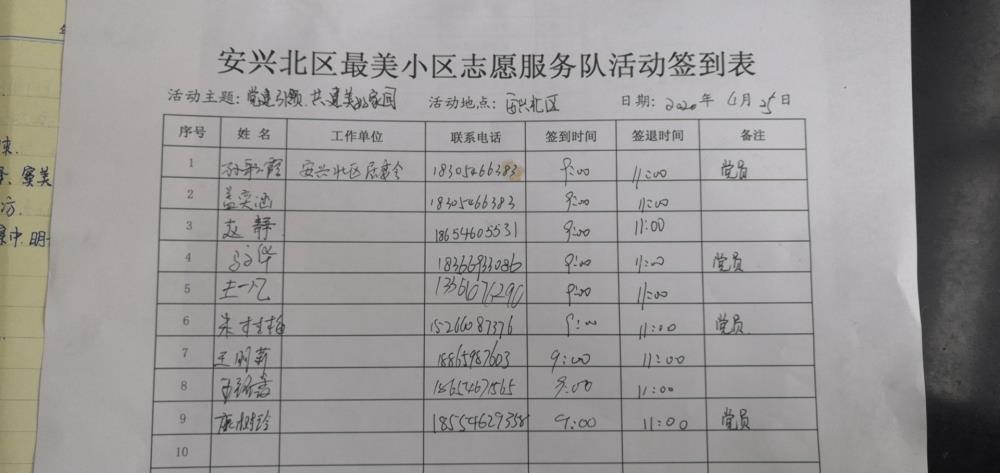 安兴北区最美小区志愿服务队活动签到表
活动主题：党建引领 共建美好家园 活动地点：安兴北区 日期：2020年4月25日
序号 姓名 工作单位 联系电话 签到时间 签退时间 备注
1 孙彩霞 安兴北区居委会 18305466383 9:00 11:00 党员
2 盖奕涵 18305466383 9:00 11:00
3 赵静 18654605531 9:00 11:00
4 18366933086 9:00 11:00 党员
5 王一凡 9:00 11:00
6 朱桂梅 15266087376 9:00 11:00 党员
7 王明莉 18865987603 9:00 11:00
8 18654671565 9:00 11:00
9 康树玲 18554629358 9:00 11:00 党员
10